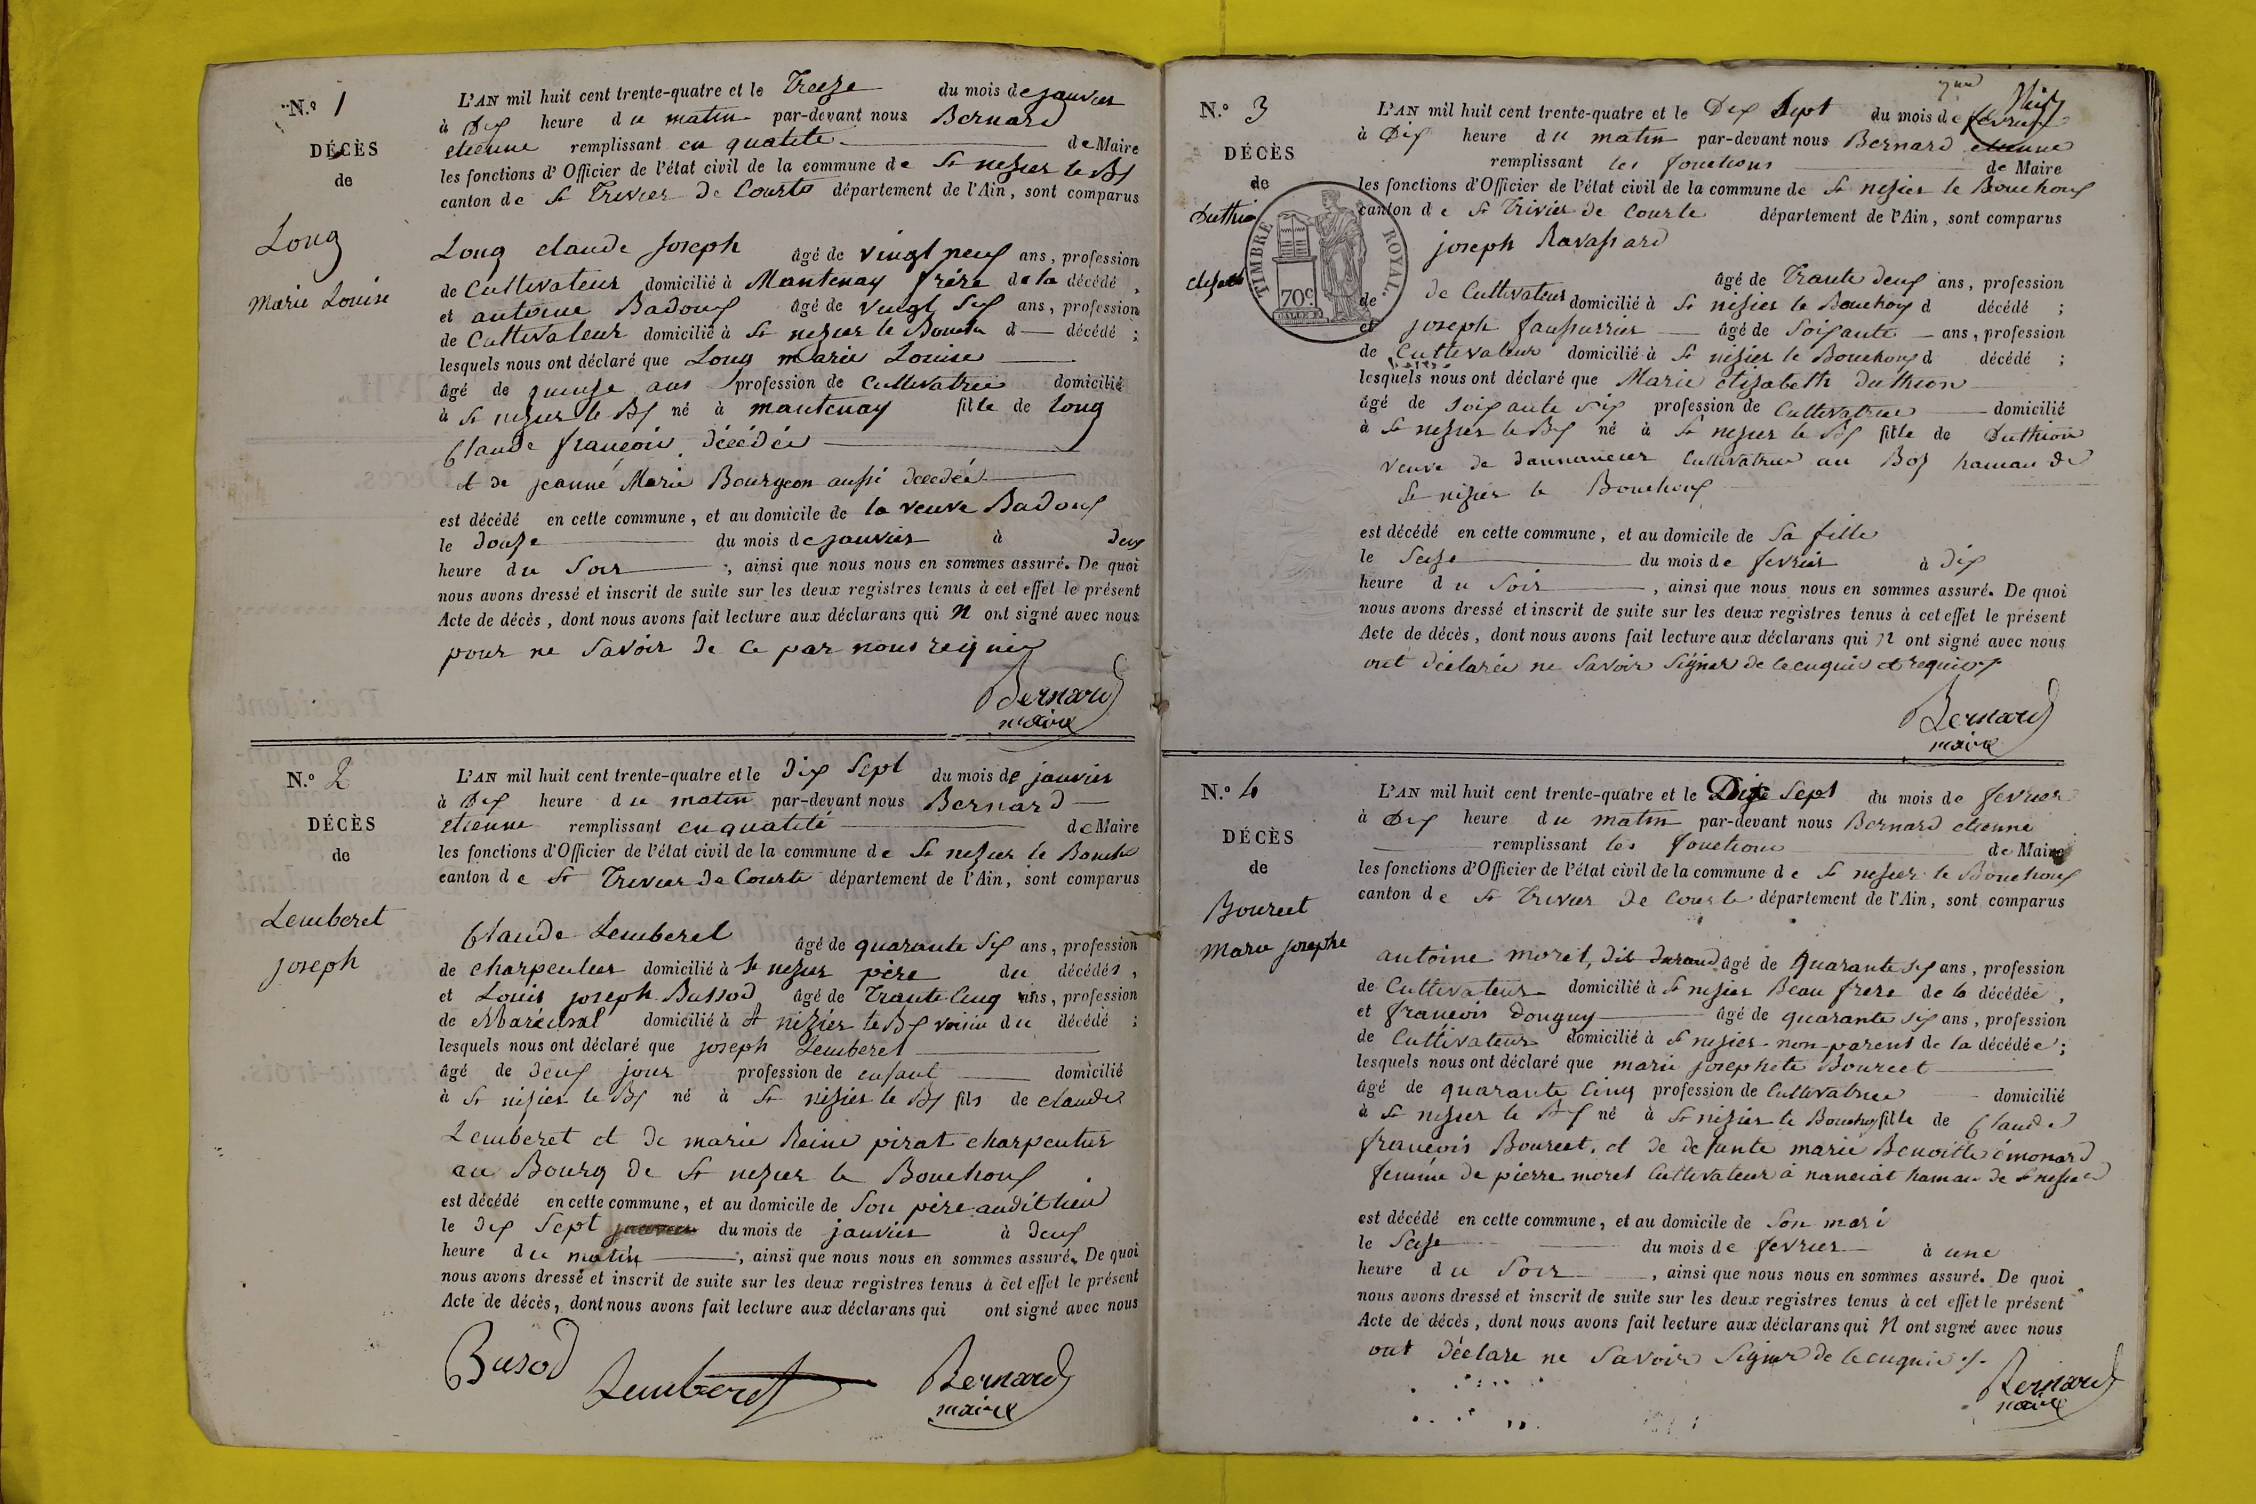 N.º 1
DÉCÈS
de
Long
Marie Louise
L'AN mil huit cent trente-quatre et le Treize du mois de janvier
à Dix heure du matin par-devant nous Bernard
etienne remplissant en qualité de Maire
les fonctions d'Officier de l'état civil de la commune de St nizier le Bx
canton de St Trivier De Courte département de l'Ain, sont comparus
Long claude Joseph âgé de vingt neuf ans, profession
de Cultivateur domicilié à Mantenay frère de la décédé,
et antoine Badoux âgé de vingt six ans, profession
de Cultivateur domicilié à St nizier le Bouchu d décédé ;
lesquels nous ont déclaré que Long marie Louise
âgé de quinze ans profession de Cultivatrice domicilié
à St nizier le Bx né à mantenay fille de long
Claude françois décédée
et de jeanne Marie Bourgeon aussi decedée
est décédé en cette commune, et au domicile de la veuve Badoux
le douze du mois de janvier à deux
heure du Soir, ainsi que nous nous en sommes assuré. De quoi
nous avons dressé et inscrit de suite sur les deux registres tenus à cet effet le présent
Acte de décès, dont nous avons fait lecture aux déclarans qui N ont signé avec nous
pour ne Savoir de ce par nous requis
Bernard
maire
N.º 2
DÉCÈS
de
Lemberet
joseph
L'AN mil huit cent trente-quatre et le Dix Sept du mois de janvier
à Dix heure du matin par-devant nous Bernard
etienne remplissant en qualité de Maire
les fonctions d'Officier de l'état civil de la commune de St nizier le Bouch
canton de St Trivier De Courte département de l'Ain, sont comparus
Claude Lemberet âgé de quarante Six ans, profession
de charpentier domicilié à St nizier père du décédés,
et Louis joseph Bussod âgé de Trante Cinq ans, profession
de Maréchal domicilié à St nizier le Bx voisin du décédé ;
lesquels nous ont déclaré que joseph Lemberet
âgé de Deux jour profession de enfant domicilié
à St nizier le Bx né à St nizier le Bx fils de claude
Lemberet et de marie Reine pirat charpentier
au Bourg de St nizier le Bouchoux
est décédé en cette commune, et au domicile de Son père audit lieu
le dix Sept janvier du mois de janvier à Deux
heure du matin, ainsi que nous nous en sommes assuré. De quoi
nous avons dressé et inscrit de suite sur les deux registres tenus à cet effet le présent
Acte de décès, dont nous avons fait lecture aux déclarans qui ont signé avec nous
Busod Lemberet Bernard
maire
N.º 3
DÉCÈS
de
Duthion
TIMBRE ROYAL.
70 c
L'AN mil huit cent trente-quatre et le Dix Sept du mois de février
à Dix heure du matin par-devant nous Bernard etienne
remplissant les fonctions de Maire
les fonctions d'Officier de l'état civil de la commune de St nizier le Bouchoux
canton de St Trivier de Courte département de l'Ain, sont comparus
joseph Ravassard
âgé de Trante deux ans, profession
de de Cultivateur domicilié à St nizier le Bouchoux d décédé ;
et joseph âgé de Soixante ans, profession
de Cultivateur domicilié à St nizier le Bouchoux d décédé ;
lesquels nous ont déclaré que Marie elizabeth duthion
âgé de soixante six profession de Cultivatrice domicilié
à St nizier le Bx né à St nizier le Bx fille de Duthion
veuve de dannancier Cultivatrice au Boz hameau de
St nizier le Bouchoux
est décédé en cette commune, et au domicile de Sa fille
le Seize du mois de fevrier à Dix
heure du Soir, ainsi que nous nous en sommes assuré. De quoi
nous avons dressé et inscrit de suite sur les deux registres tenus à cet effet le présent
Acte de décès, dont nous avons fait lecture aux déclarans qui n ont signé avec nous
ont déclarée ne Savoir Signer de ce enquis et requis
Bernard
maire
N.º 4
DÉCÈS
de
Bourcet
Marie josephe
L'AN mil huit cent trente-quatre et le Dix Sept du mois de fevrier
à Dix heure du matin par-devant nous Bernard etienne
remplissant les fonctions de Maire
les fonctions d'Officier de l'état civil de la commune de St nizier le Bouchoux
canton de St Trivier de Courte département de l'Ain, sont comparus
antoine moret, dit durand âgé de Quarante six ans, profession
de Cultivateur domicilié à St nizier Beau frere de la décédée,
et françois Donguy âgé de quarante six ans, profession
de Cultivateur domicilié à St nizier non parent de la décédée ;
lesquels nous ont déclaré que marie josephete Bourcet
âgé de quarante Cinq profession de Cultivatrice domicilié
à St nizier le Bx né à St nizier le Bouchoux fille de Claude
françois Bourcet, et de defunte marie Benoitte émonard
femme de pierre moret Cultivateur à nanciat hamau de St nizier
est décédé en cette commune, et au domicile de Son mari
le Seize du mois de fevrier à une
heure du Soir, ainsi que nous nous en sommes assuré. De quoi
nous avons dressé et inscrit de suite sur les deux registres tenus à cet effet le présent
Acte de décès, dont nous avons fait lecture aux déclarans qui N ont signé avec nous
ont déclare ne Savoir Signer de ce enquis
Bernard
maire